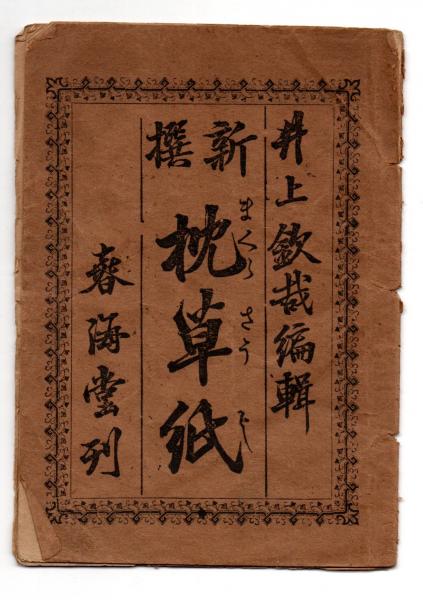 井上欽哉編輯
新撰
枕草紙
まくらさうし
春海堂刊